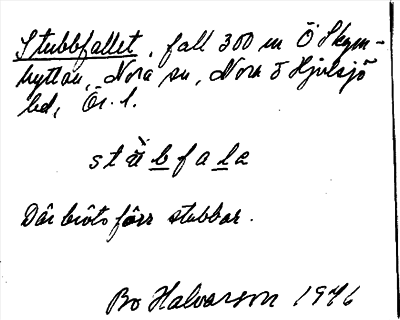 Stubbfallet, fall 300 m Ö Skym-
hyttan, Nora sn, Nora o Hjulsjö
bd, Ör. l.
stu̇bfala
Där bröts förr stubbar.
Bo Halvarson 1946